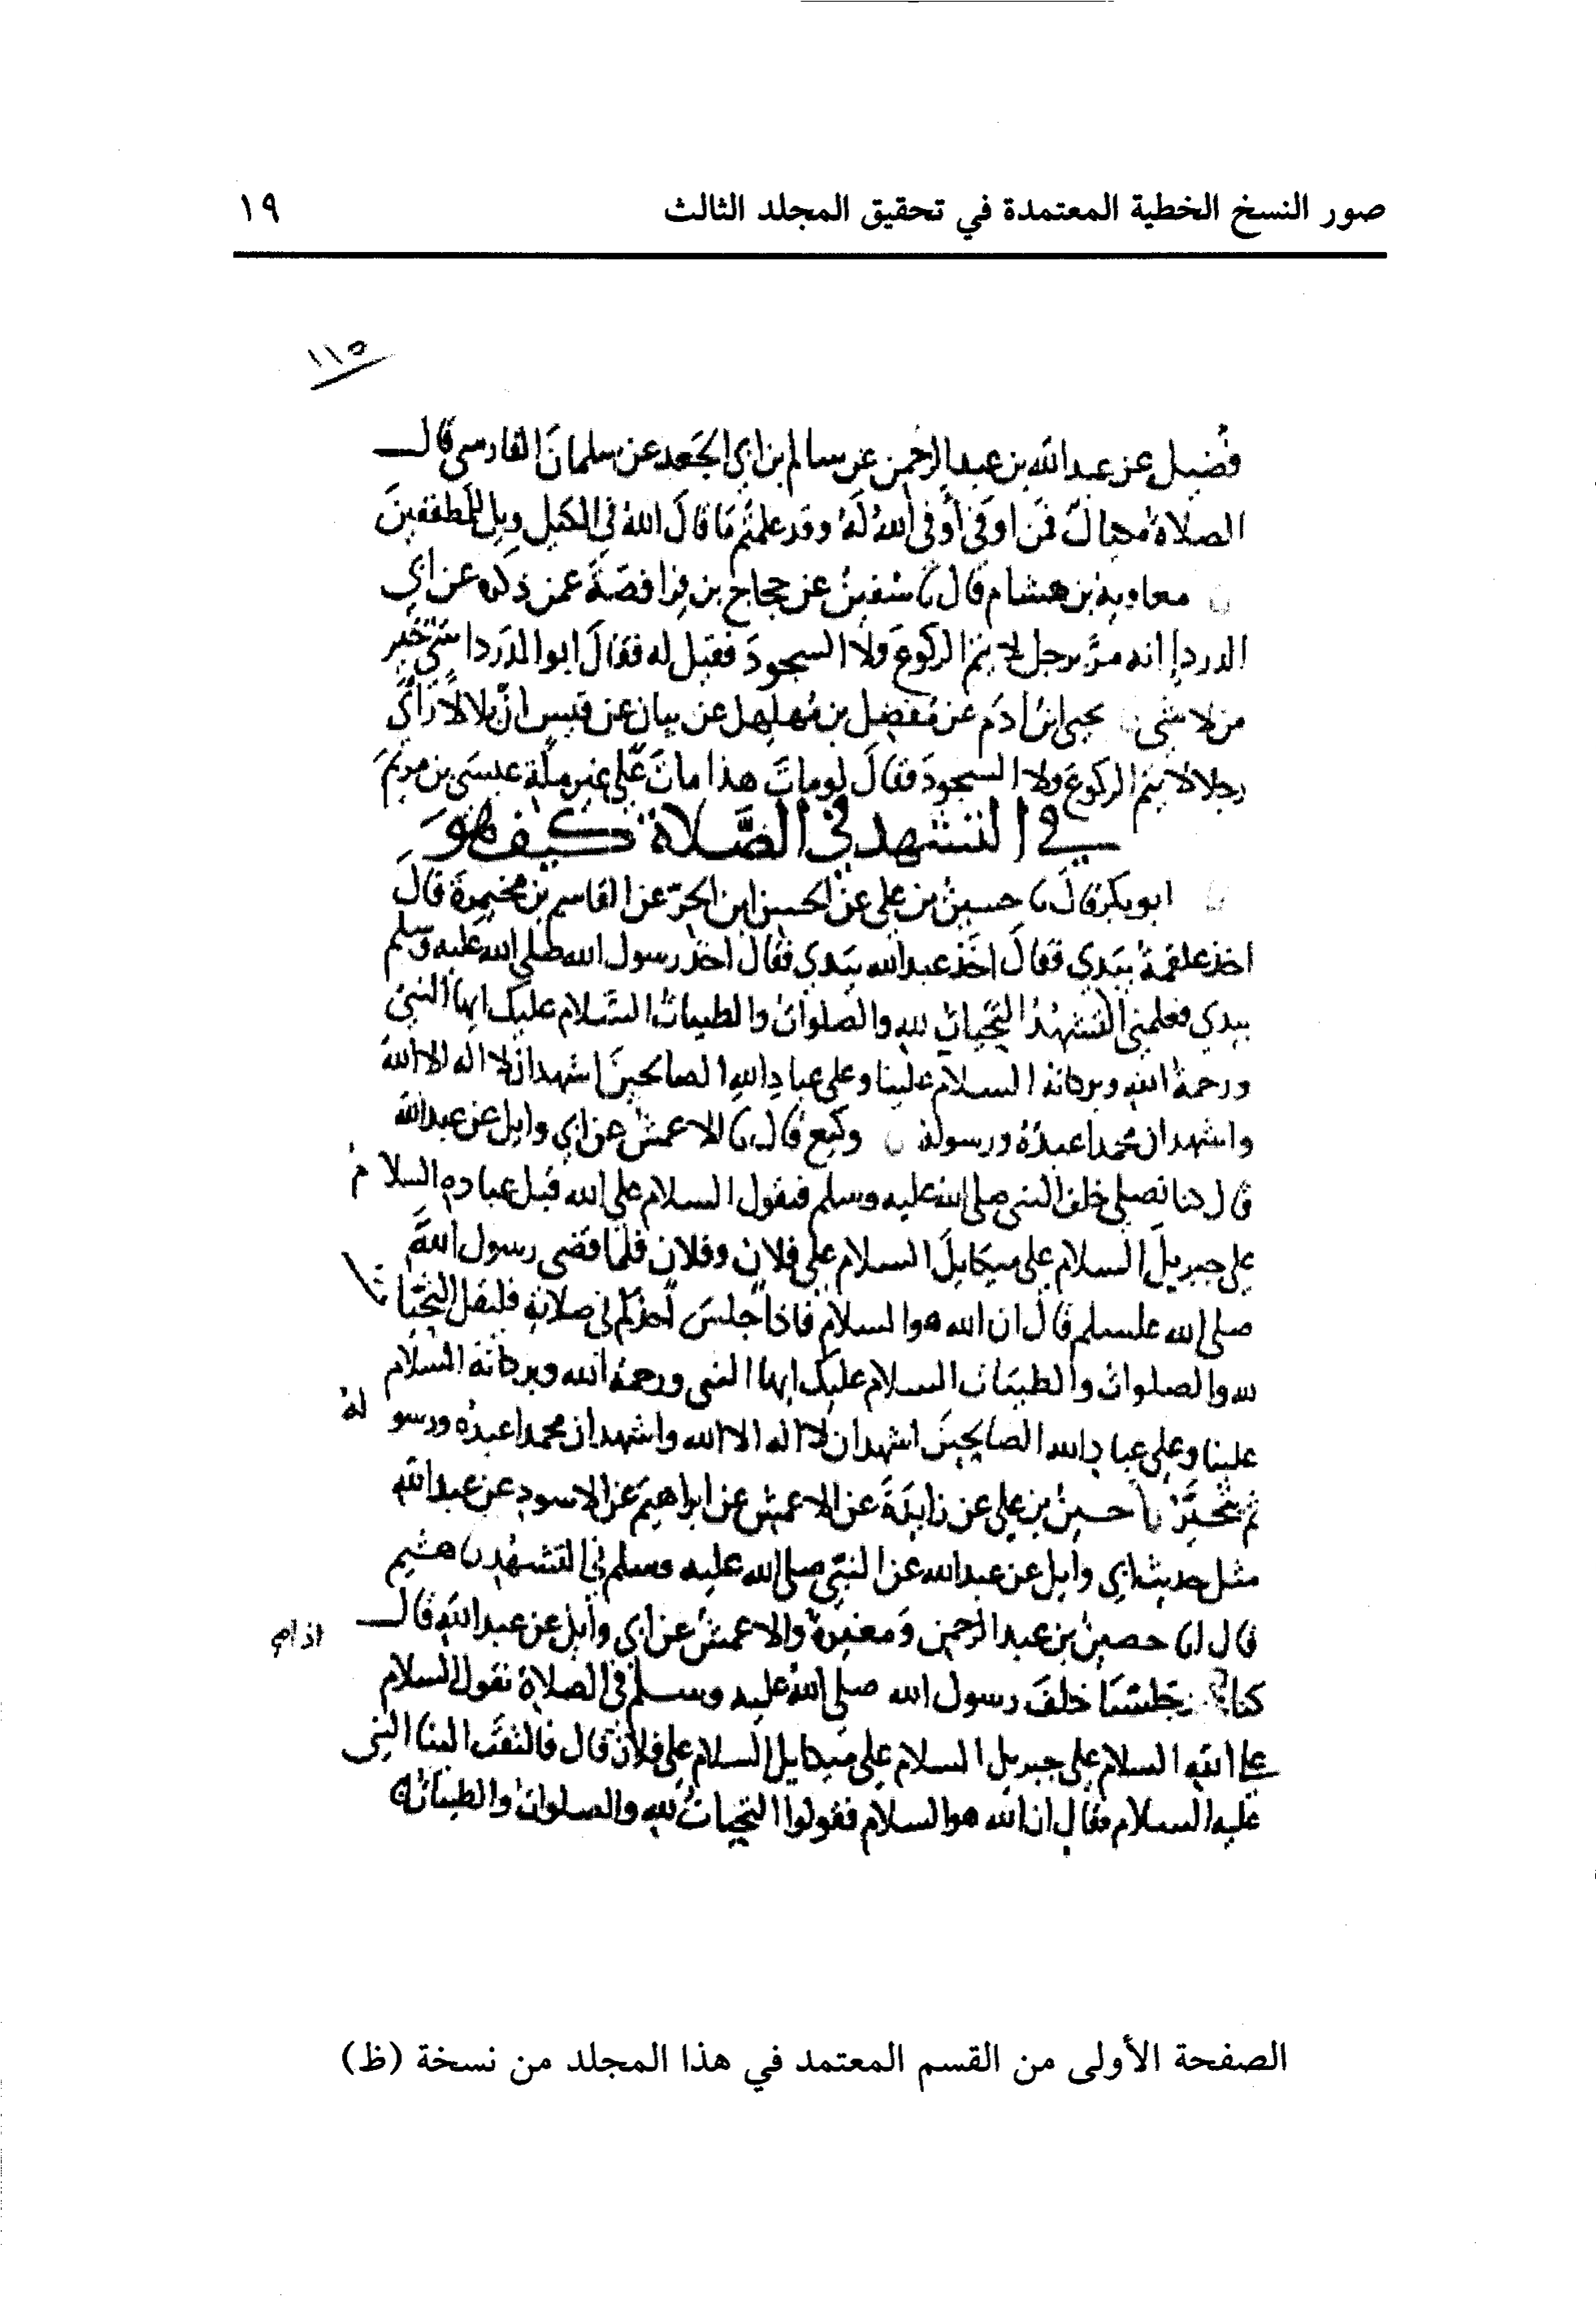 صور النسخ الخطية المعتمدة في تحقيق المجلد الثالث
١٩
١١٥
فضيل عن عبد الله بن عبد الرحمن عن سالم بن ابي الجعد عن سلمان الفارسي قال
الصلاة مكيال فمن اوفى أوفى الله له وقد علمتم ما قال الله في الكيل ويل للمطففين
معاوية بن هشام قال نا سفين عن حجاج بن فرافصة عمن ذكره عن ابي
الدرداء انه مر برجل لا يتم الركوع ولا السجود فقيل له فقال ابو الدرداء شيء خير
من لا شيء يحيى ابن ادم عن مفضل بن مهلهل عن بيان عن قيس ان بلالا رأى
رجلا لا يتم الركوع ولا السجود فقال لو مات هذا مات على غير ملة عيسى بن مريم
في التشهد في الصلاة كيف هو
ابو بكر قال نا حسين بن علي عن الحسن ابن الحر عن القاسم بن مخيمرة قال
اخذ علقمة بيدي فقال اخذ عبد الله بيدي فقال اخذ رسول الله صلى الله عليه وسلم
بيدي فعلمني التشهد التحيات لله والصلوات والطيبات السلام عليك ايها النبي
ورحمة الله وبركاته السلام علينا وعلى عباد الله الصالحين اشهد ان لا اله الا الله
واشهد ان محمدا عبده ورسوله وكيع قال نا الاعمش عن ابي وايل عن عبد الله
قال كنا نصلي خلف النبي صلى الله عليه وسلم فنقول السلام على الله قبل عباده السلام
على جبريل السلام على ميكايل السلام على فلان وفلان فلما قضى رسول الله
صلى الله علسلم قال ان الله هو السلام فاذا جلس أحدكم في صلاته فليقل التحيات
لله والصلوات والطيبات السلام عليك ايها النبي ورحمة الله وبركاته السلام
علينا وعلى عباد الله الصالحين اشهد ان لا اله الا الله واشهد ان محمدا عبده ورسوله
ثم يتخير نا حسين بن علي عن زايدة عن الاعمش عن ابراهيم عن الاسود عن عبد الله
مثل حديث ابي وايل عن عبد الله عن النبي صلى الله عليه وسلم في التشهد نا هشيم
قال انا حصين بن عبد الرحمن ومغيرة والاعمش عن ابي وايل عن عبد الله قال
كنا جلسنا خلف رسول الله صلى الله عليه وسلم في الصلاة نقول السلام
على الله السلام على جبريل السلام على ميكايل السلام على فلان قال فالتفت الينا النبي
عليه السلام فقال ان الله هو السلام فقولوا التحيات لله والصلوات والطيبات
الصفحة الأولى من القسم المعتمد في هذا المجلد من نسخة (ظ)